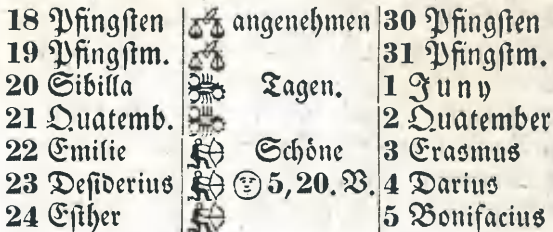 18 Pfingſten angenehmen 30 Pfingſten
19 Pfingſtm. 31 Pfingſtm.
20 Sibilla Tagen. 1 Juny
21 Quatemb. 2 Quatember
22 Emilie Schöne 3 Erasmus
23 Deſiderius 5, 20. V. 4 Darius
24 Eſther 5 Bonifacius